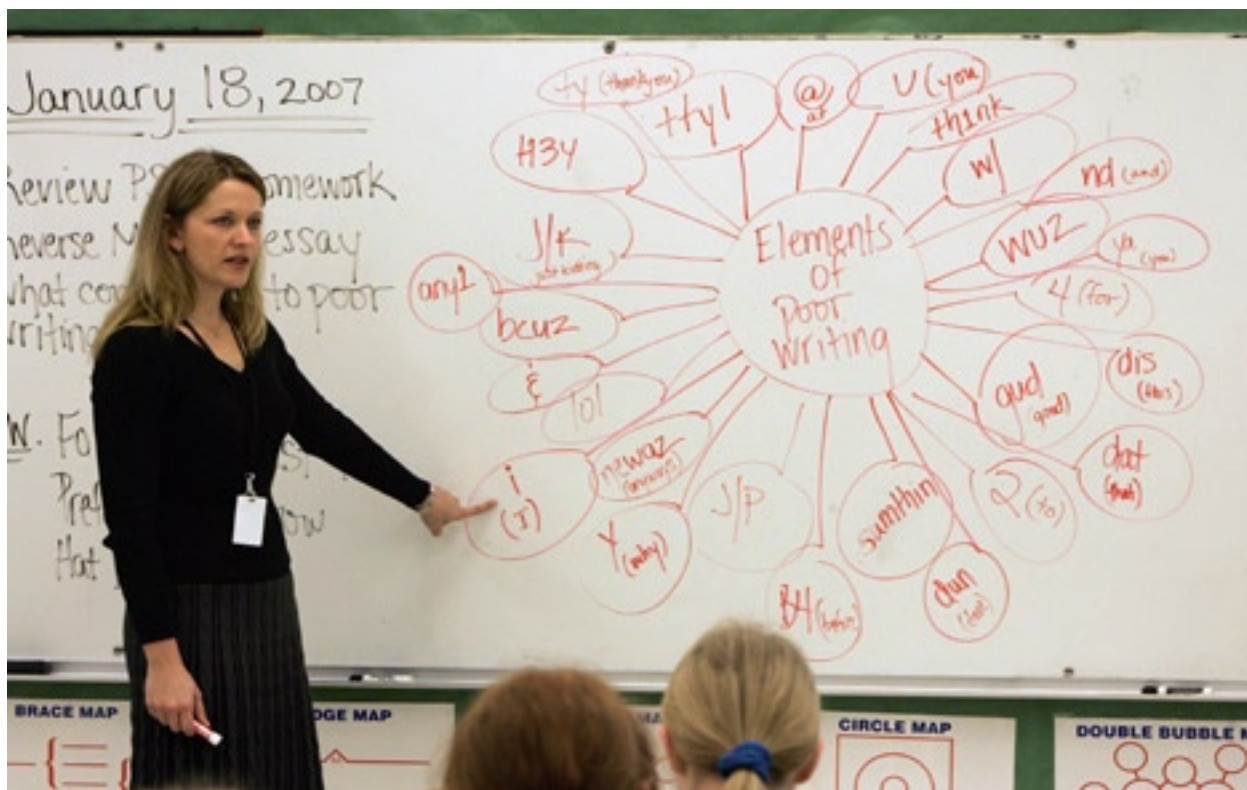 January 18, 2007
Review omework
Reverse essay
what to poor
writing
Fo
Pref ow
Hat
Elements
of
Poor
Writing
ty (thankyou)
ttyl
@
at
U (you)
th1nk
w/
nd (and)
wuz
ya (you)
4 (for)
dis
(this)
gud
(good)
dat
(that)
2 (to)
sumthin
dun
B4 (before)
J/p
Y
(why)
newaz
(anyways)
i
(I)
lol
&
bcuz
any1
J/K
(just kidding)
H3Y
BRACE MAP
DGE MAP
MA
CIRCLE MAP
DOUBLE BUBBLE M